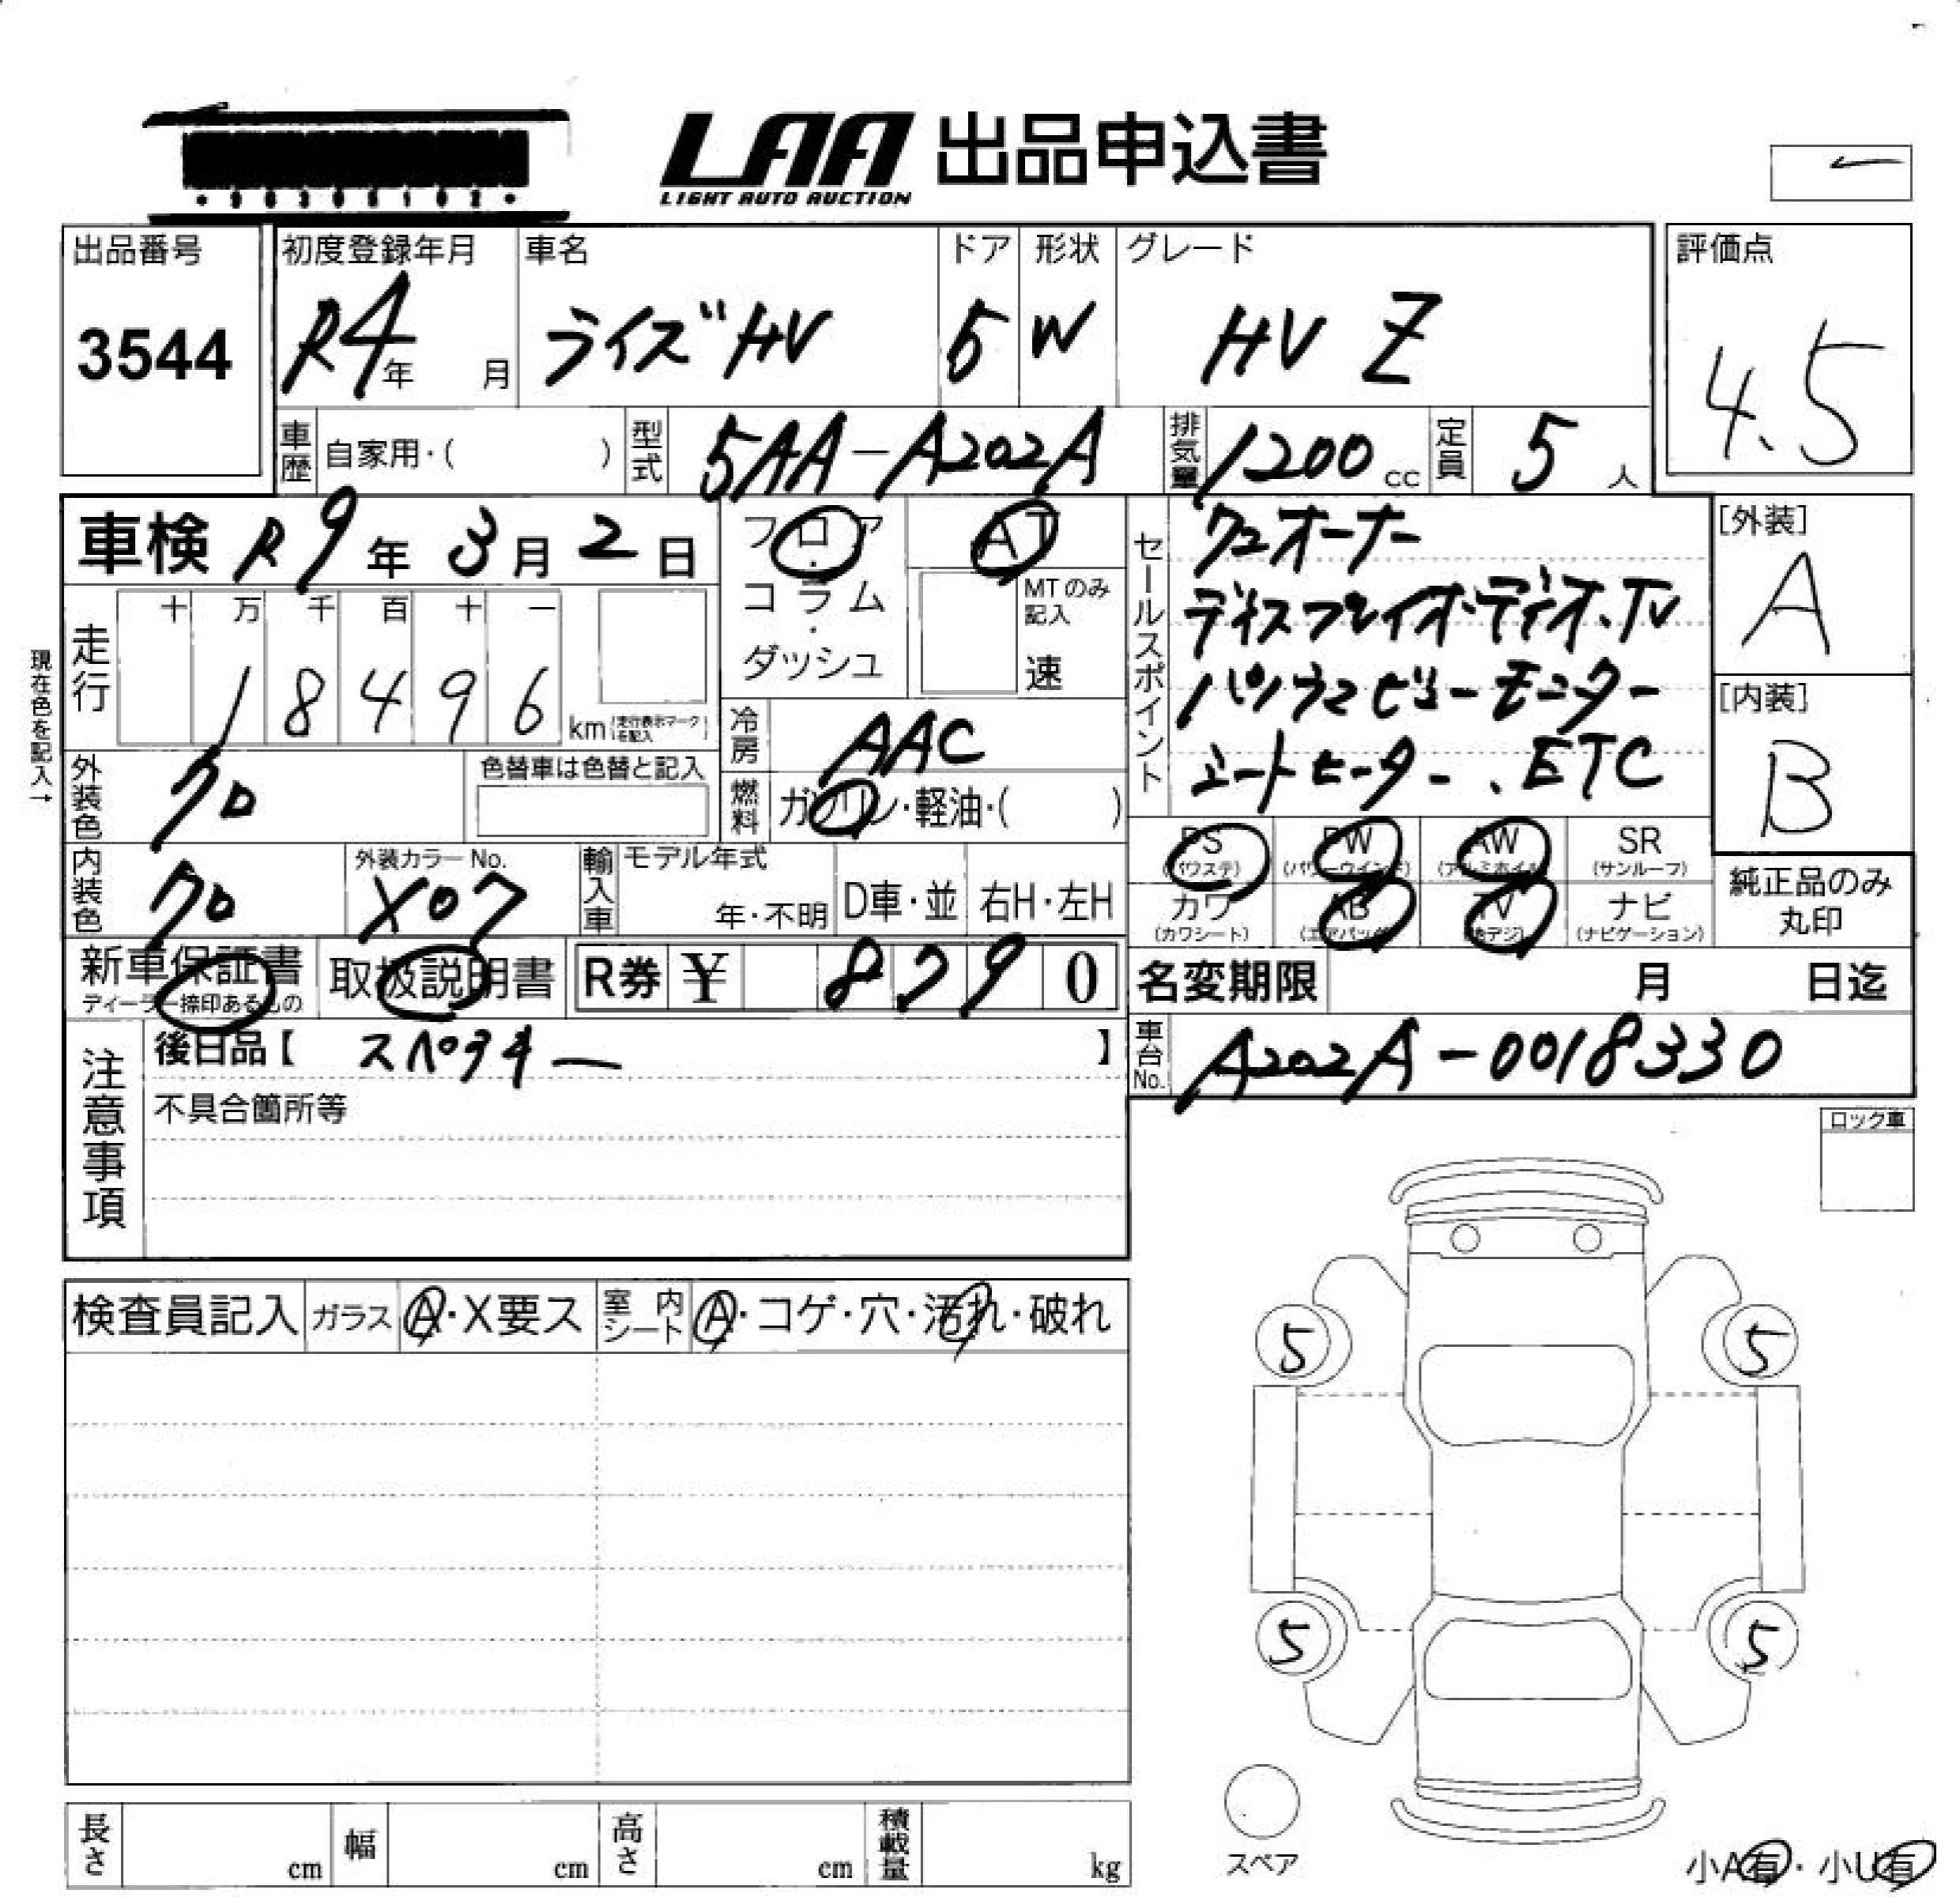 LAA 出品申込書
LIGHT AUTO AUCTION
出品番号 初度登録年月 車名 ドア 形状 グレード 評価点
3544 R4年 月 ライズHV 5 W HV Z 4.5
車歴 自家用・( ) 型式 5AA-A202A 排気量 1200cc 定員 5人
車検 R9年3月2日 フロア・コラム・ダッシュ AT
MTのみ記入 速
現在色を記入→
走行 十 万 千 百 十 一
18496 km(走行表示マークを記入)
冷房 AAC
外装色 クロ 色替車は色替と記入
燃料 ガソリン・軽油・( )
内装色 クロ 外装カラーNo. X07 輸入車 モデル年式 年・不明 D車・並 右H・左H
セールスポイント
ワンオーナー
ディスプレイオーディオ、TV
パノラマビューモニター
シートヒーター、ETC
[外装]
A
[内装]
B
PS(パワステ) PW(パワーウインド) AW(アルミホイル) SR(サンルーフ)
カワ(カワシート) AB(エアバッグ) TV(地デジ) ナビ(ナビゲーション)
純正品のみ丸印
新車保証書 ディーラー捺印あるもの 取扱説明書 R券 ¥ 8790
名変期限 月 日迄
車台No. A202A-0018330
注意事項
後日品【 スペアキー 】
不具合箇所等
ロック車
検査員記入 ガラス A・X要ス 室内シート A・コゲ・穴・汚れ・破れ
5 5
5 5
スペア
長さ cm 幅 cm 高さ cm 積載量 kg
小A有・小U有